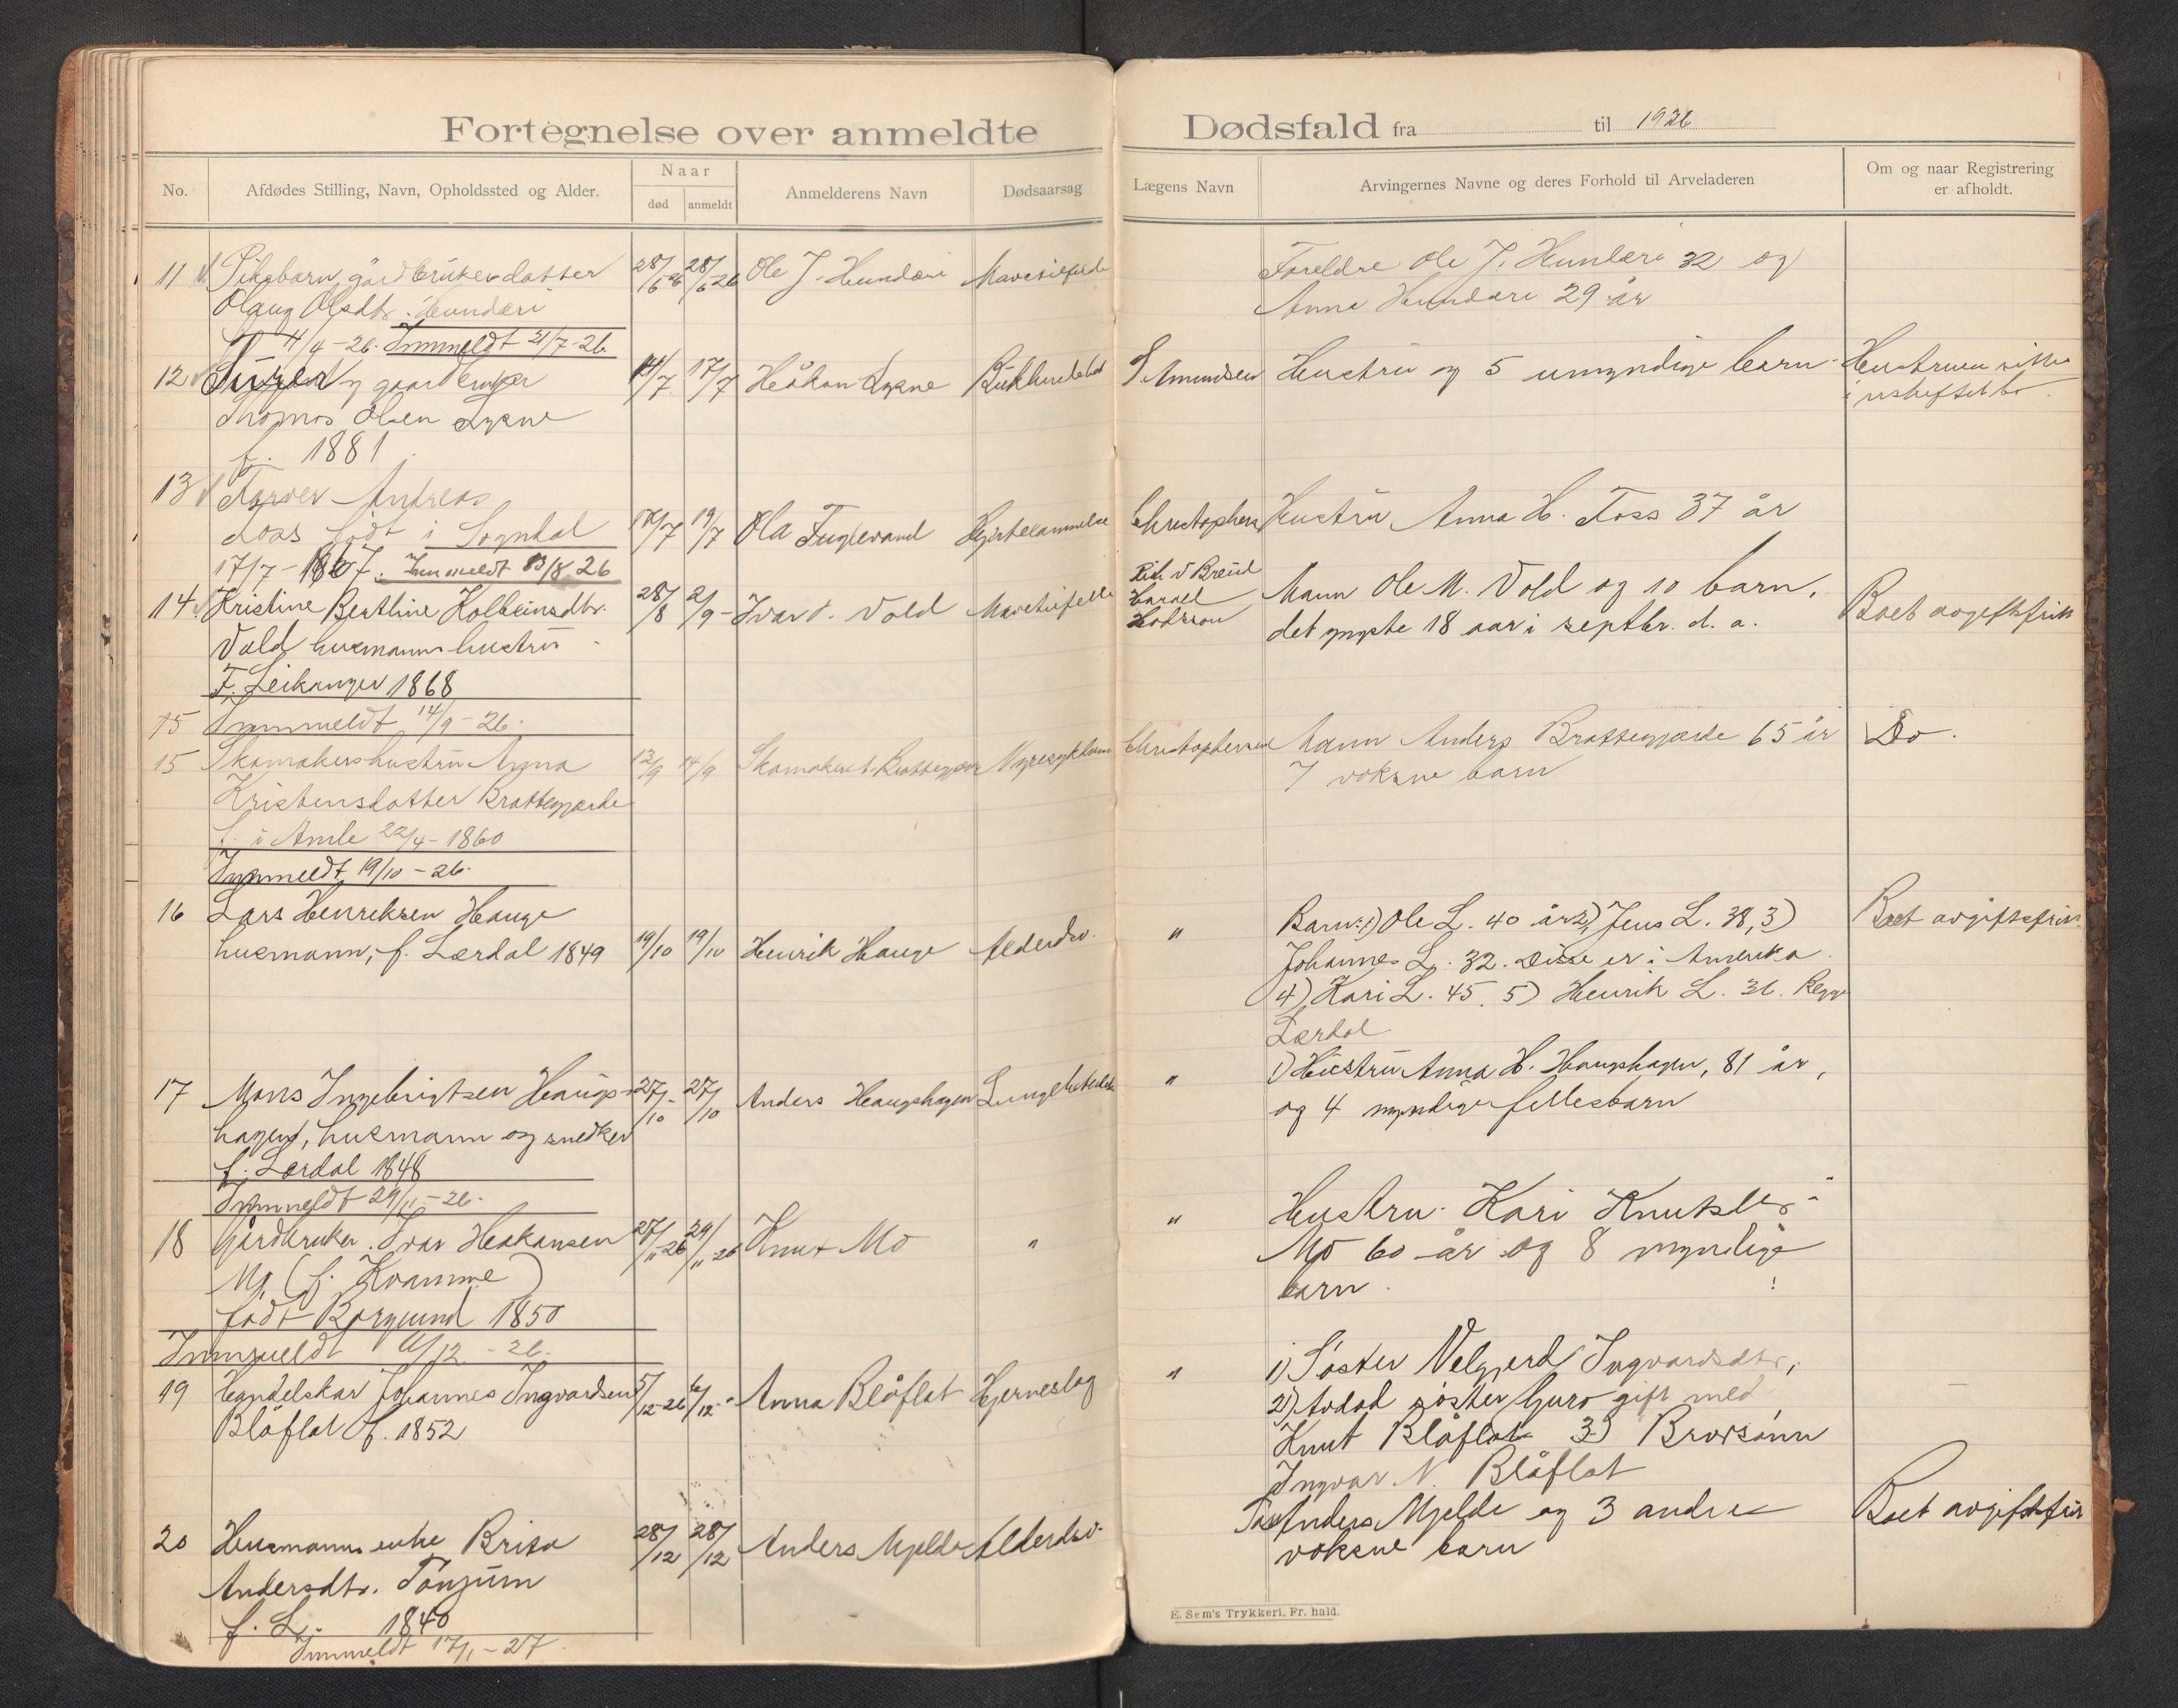 Fortegnelse over anmeldte Dødsfald fra til 1926
No.
Afdødes Stilling, Navn, Opholdssted og Alder.
Naar
død
anmeldt
Anmelderens Navn
Dødsaarsag
Lægens Navn
Arvingernes Navne og deres Forhold til Arveladeren
Om og naar Registrering
er afholdt.
11 Pikebarn, gårdbruker datter 28/6-26 28/6-26 Ole J. Hundæri
Olaug Olsdtr. Hundæri
11/4-26. Innmeldt 21/7-26
Foreldre Ole J. Hundæri 32 og
Anna Hundæri 29 år
12 og gaardbruker 14/7 17/7 Håkon Lysne
Thomas Olsen Lysne
f. 1881
Amundsen Hustru og 5 umyndige barn Hustruen sitter
i uskiftet bo
13 Farver Andreas
Foss født i Sogndal 17/7 19/7 Ola Fuglevand Hjertelammelse
17/7-1867. Innmeldt 13/8 26
Christophers Hustru Anna H. Foss 37 år
14. Kristine Berthine Kolbeinsdtr. 28/8 2/9 Ivar O. Vold
Vold husmanns hustru
F. Leikanger 1868
Mann Ole M. Vold og 10 barn,
det yngste 18 aar i septbr. d. a.
Boet avgiftsfritt
15 Innmeldt 14/9-26.
15 Skomakershustru Anna 12/9 14/9
Kristensdatter Brattegjærde
f. i Amle 22/4-1860
Innmeldt 19/10-26.
Christophersen Mann Anders Brattegjærde 65 år Do.
7 voksne barn
16 Lars Henriksen Hauge
husmann, f. Lærdal 1849 19/10 19/10 Henrik Hauge Alderdsv.
" Barn: 1) Ole L. 40 år 2) Jens L. 38, 3) Boet avgiftsfritt
Johannes L. 32. Disse er i Amerika.
4) Kari L. 45. 5) Henrik L. 36. Begge
Lærdal
17 Mons Ingebrigtsen Haugs- 27/10 27/10 Anders Haugshagen
hagen, husmann og snedker
f. Lærdal 1848
Innmeldt 29/11-26.
" 1) Hustru Anna H. Haugshagen, 81 år,
og 4 myndige fellesbarn
18 Gårdbruker Ivar Hakansen 27/11-26 29/11-26 Knut Mo "
Mo (f. Kvamme)
født Borgund 1850
Innmeldt 6/12-26.
" Hustru Kari Knutsdtr
Mo 60 år og 8 myndige
barn.
19 Handelskar Johannes Ingvardsen 5/12-26 6/12 " Anna Blåflat Hjerneslag
Blåflat f. 1852
" 1) Søster Velgjerd Ingvardsdtr,
2) Avdød søster Guro gift med
Knut Blåflat 3) Brorsønn
Ingvar N. Blåflat
20 Husmanns enke Brita 28/12 28/12 Anders Mjelde Alderdsv.
Andersdtr. Tønjum
f. L. 1840
Innmeldt 17/1-27.
Anders Mjelde og 3 andre Boet avgiftsfritt
voksne barn
E. Sem's Trykkeri, Fr.hald.